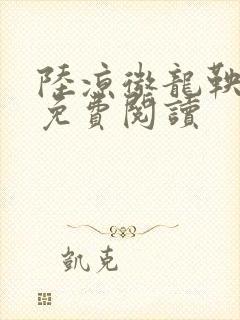 陸凉徹龍鞅
免費閱讀
凱克